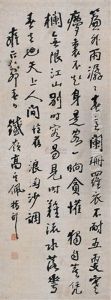 簾外雨潺潺春意闌珊羅衾不耐五更寒
夢裏不知身是客一晌貪歡獨自莫憑
欄無限江山別時容易見時難流水落花
春去也天上人間 浪淘沙調
鐵嶺高其佩